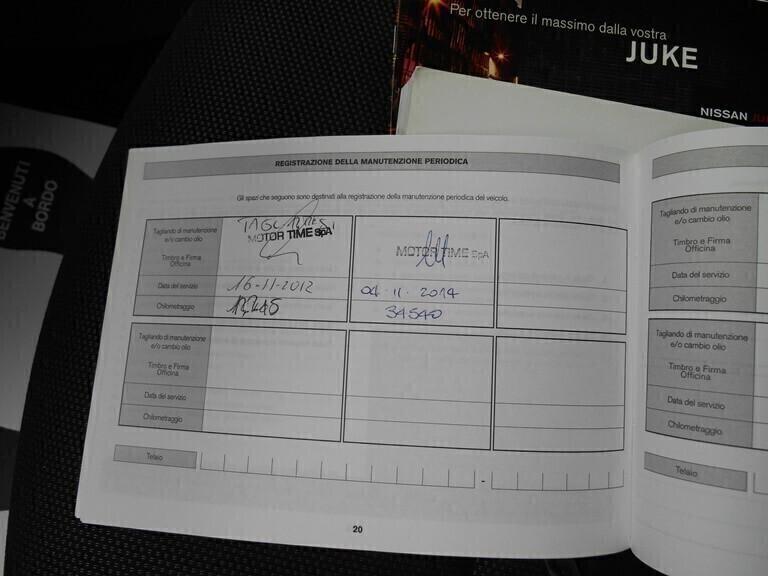 Per ottenere il massimo dalla vostra
JUKE
NISSAN JUKE
BENVENUTI
A
BORDO
REGISTRAZIONE DELLA MANUTENZIONE PERIODICA
Gli spazi che seguono sono destinati alla registrazione della manutenzione periodica del veicolo.
Tagliando di manutenzione
e/o cambio olio
MOTOR TIME SpA
MOTOR TIME SpA
Timbro e Firma
Officina
Data del servizio 16-11-2012 04.11.2014
Chilometraggio 34540
Tagliando di manutenzione
e/o cambio olio
Timbro e Firma
Officina
Data del servizio
Chilometraggio
Telaio -
20
Tagliando di manutenzione
e/o cambio olio
Timbro e Firma
Officina
Data del servizio
Chilometraggio
Tagliando di manutenzione
e/o cambio olio
Timbro e Firma
Officina
Data del servizio
Chilometraggio
Telaio